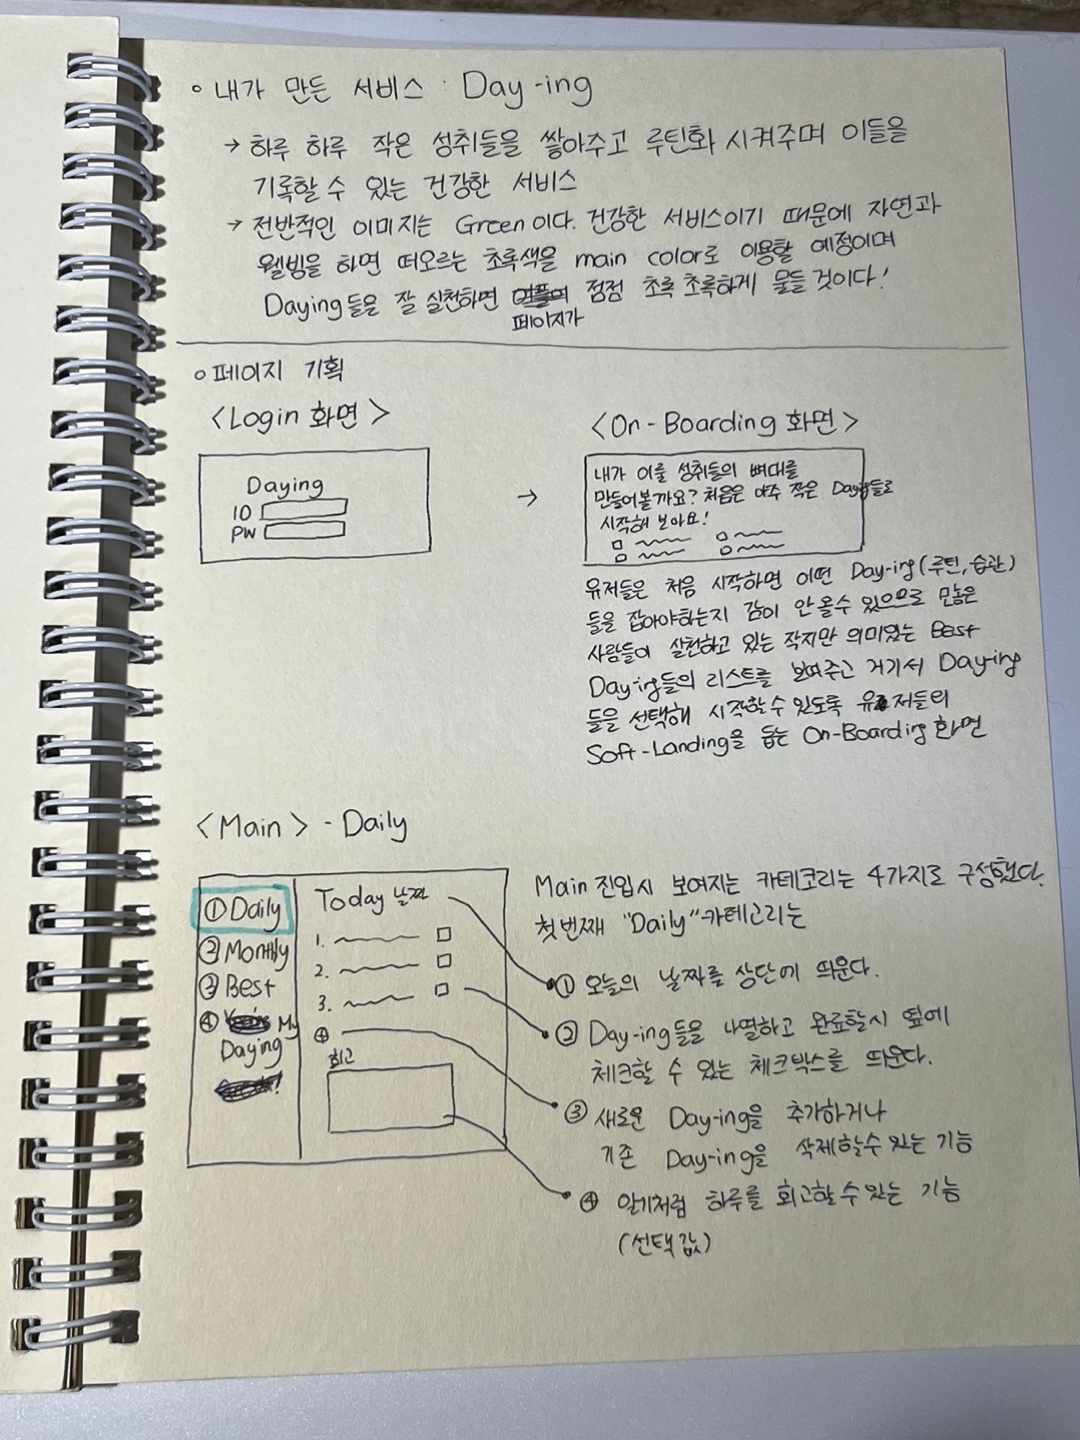 ○ 내가 만든 서비스 : Day-ing
→ 하루 하루 작은 성취들을 쌓아주고 루틴화 시켜주며 이들을
기록할 수 있는 건강한 서비스
→ 전반적인 이미지는 Green이다. 건강한 서비스이기 때문에 자연과
웰빙을 하면 떠오르는 초록색을 main color로 이용할 예정이며
Daying들은 잘 실천하면 점점 초록초록하게 물들 것이다!
페이지가
○ 페이지 기획
<Login 화면>
Daying
ID
PW
→
<On-Boarding 화면>
내가 이룰 성취들의 뼈대를
만들어볼까요? 처음은 아주 작은 Daying들로
시작해 보아요!
유저들은 처음 시작하면 어떤 Day-ing(루틴,습관)
들을 잡아야하는지 감이 안올수 있으므로 많은
사람들이 실천하고 있는 작지만 의미있는 Best
Day-ing들의 리스트를 보여주고 거기서 Day-ing
들을 선택해 시작할수 있도록 유저들의
Soft-Landing을 돕는 On-Boarding 화면
<Main> - Daily
① Daily
② Monthly
③ Best
④ My
Daying
Today 날짜
1.
2.
3.
⊕
회고
Main 진입시 보여지는 카테코리는 4가지로 구성했다.
첫번째 "Daily"카테고리는
① 오늘의 날짜를 상단에 띄운다.
② Day-ing들을 나열하고 완료할시 옆에
체크할 수 있는 체크박스를 띄운다.
③ 새로운 Day-ing을 추가하거나
기존 Day-ing을 삭제할수 있는 기능
④ 일기처럼 하루를 회고할 수 있는 기능
(선택값)